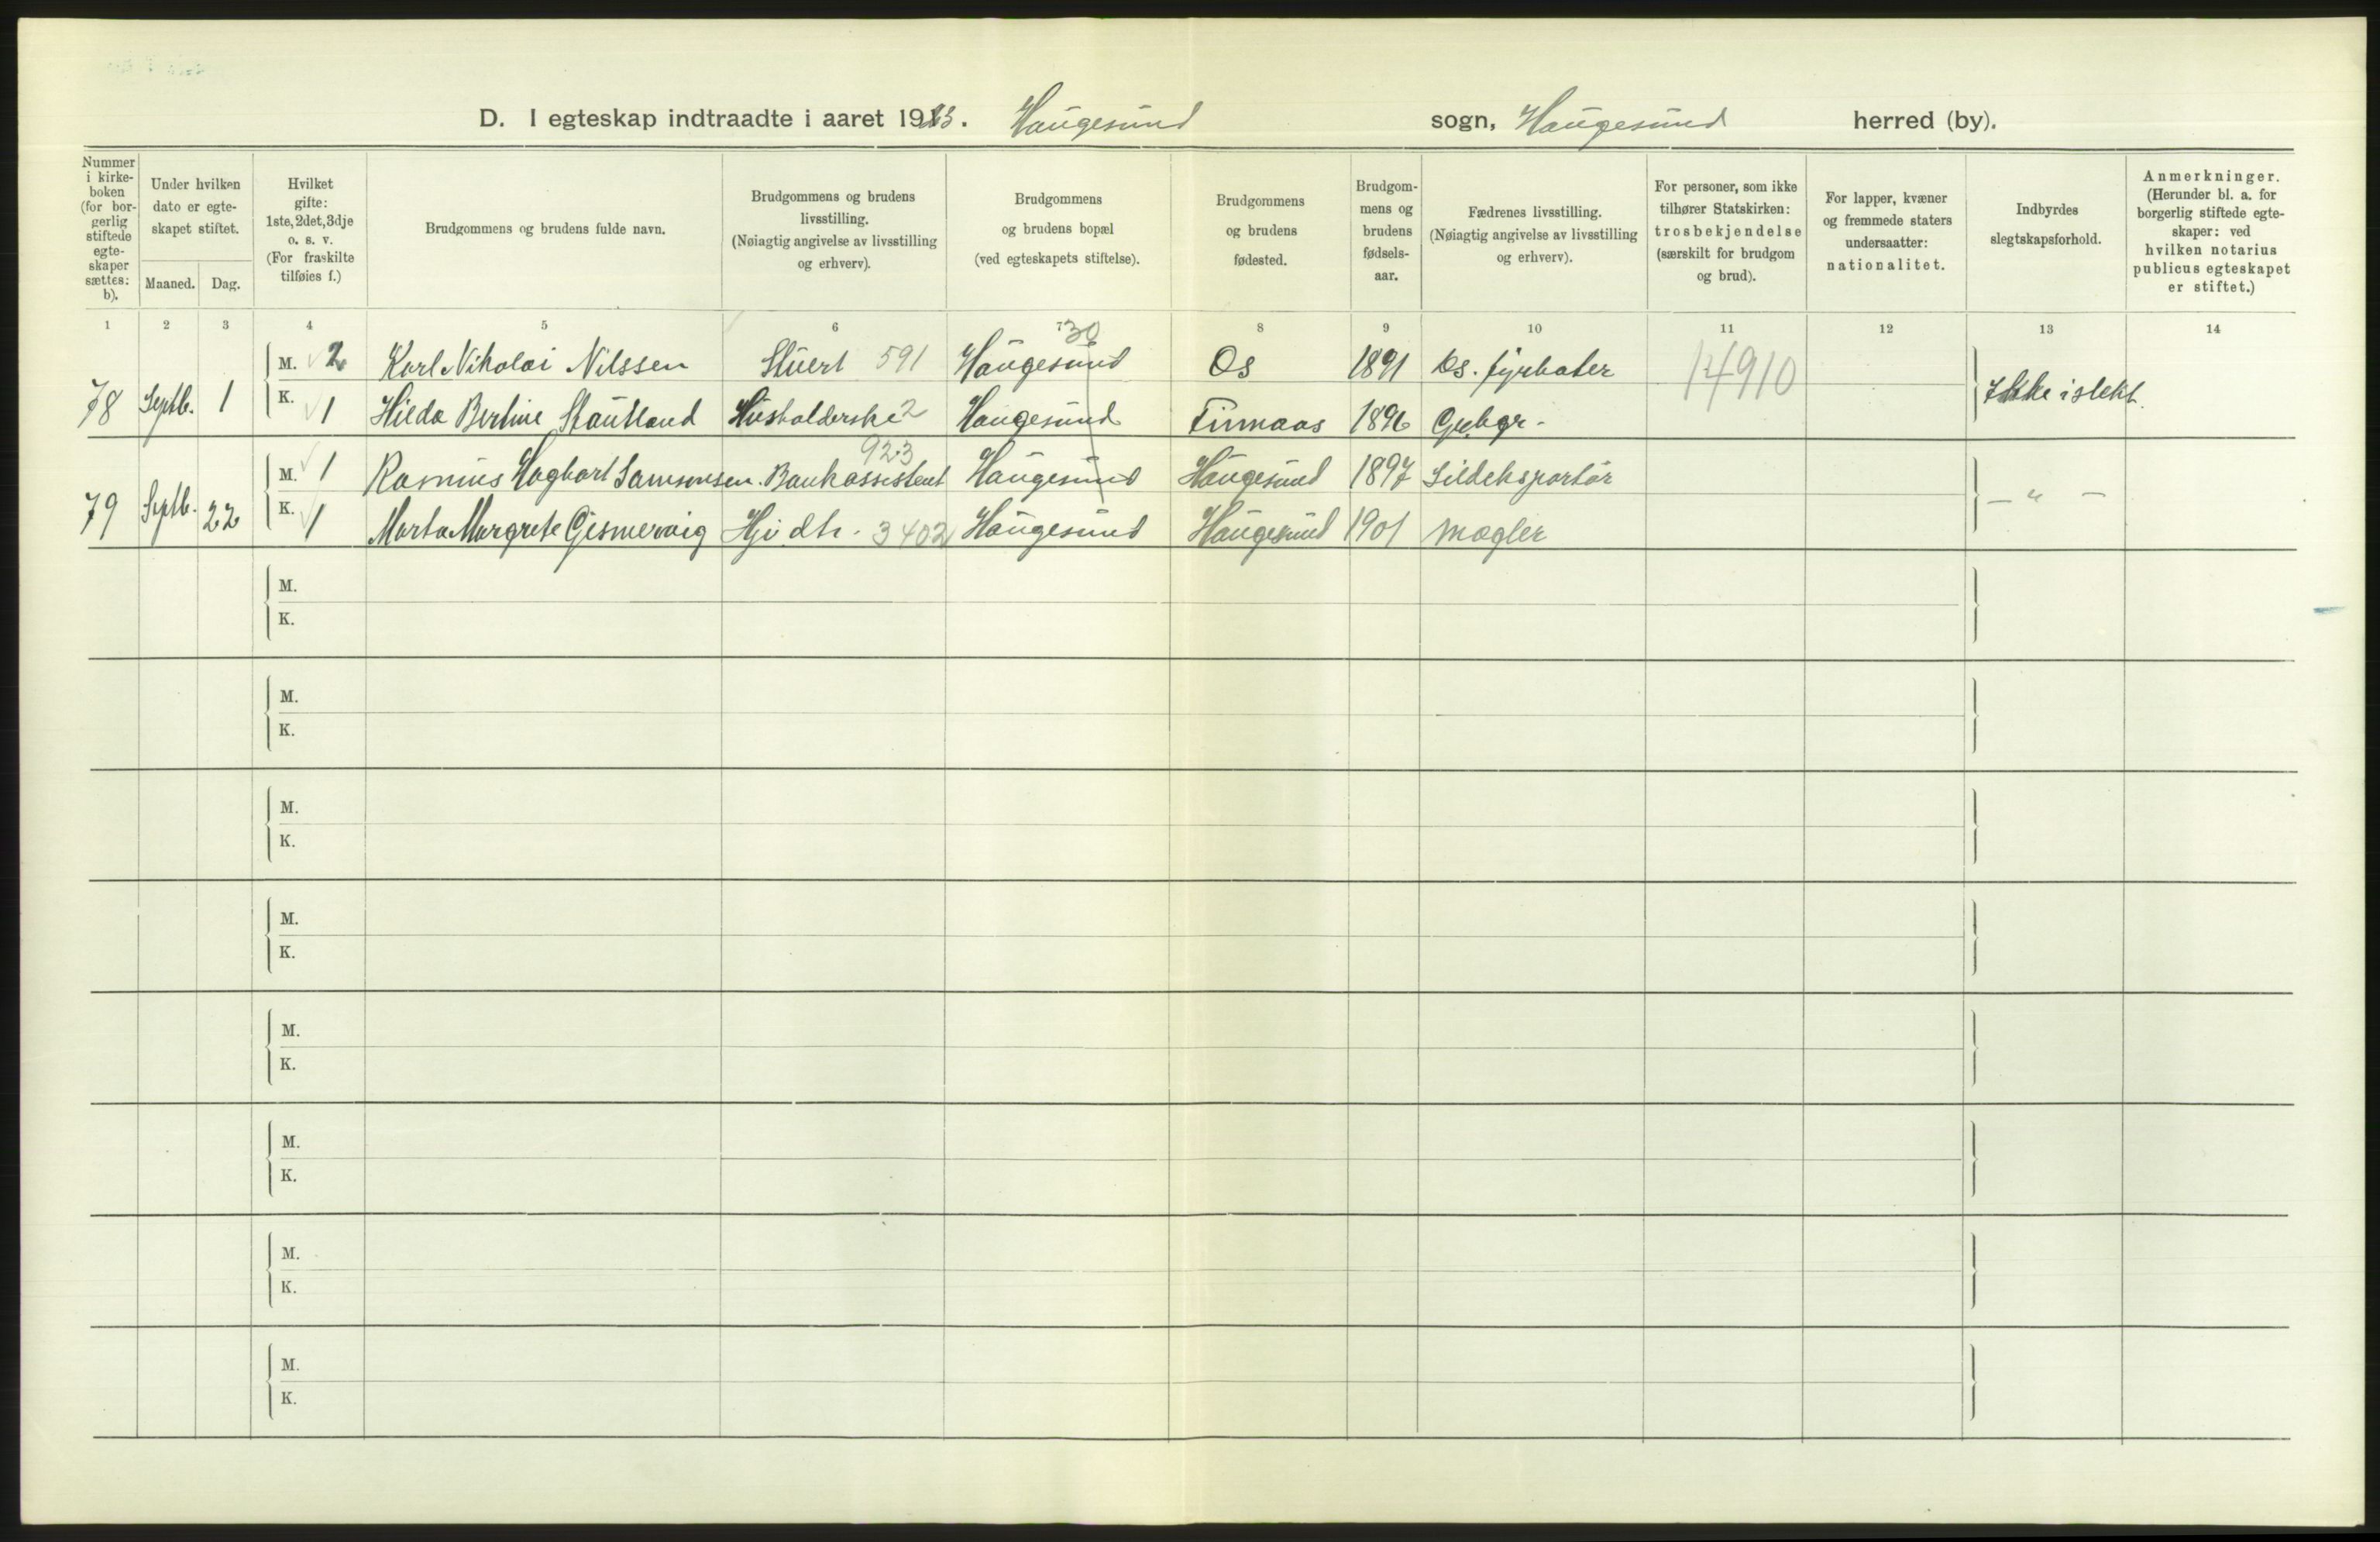 D. I egteskap indtraadte i aaret 1923. Haugesund sogn, Haugesund herred (by).
Nummer i kirke-boken (for bor-gerlig stiftede egte-skaper sættes: b).
Under hvilken dato er egte-skapet stiftet.
Maaned. Dag.
Hvilket gifte: 1ste, 2det, 3dje o. s. v. (For fraskilte tilføies f.)
Brudgommens og brudens fulde navn.
Brudgommens og brudens livsstilling. (Nøiagtig angivelse av livsstilling og erhverv).
Brudgommens og brudens bopæl (ved egteskapets stiftelse).
Brudgommens og brudens fødested.
Brudgom-mens og brudens fødsels-aar.
Fædrenes livsstilling. (Nøiagtig angivelse av livsstilling og erhverv).
For personer, som ikke tilhører Statskirken: trosbekjendelse (særskilt for brudgom og brud).
For lapper, kvæner og fremmede staters undersaatter: nationalitet.
Indbyrdes slegtskapsforhold.
Anmerkninger. (Herunder bl. a. for borgerlig stiftede egte-skaper: ved hvilken notarius publicus egteskapet er stiftet.)
1 2 3 4 5 6 7 8 9 10 11 12 13 14
30
78 Septb. 1 M. 2 Karl Nikolai Nilssen Stuert 591 Haugesund Os 1891 Os. fyrbøter 14910 Ikke i slekt.
K. 1 Hilda Bertine Stautland Husholderske 2 Haugesund Finnaas 1896 Grbgr.
923
79 Septb. 22 M. 1 Rasmus Hagbart Samsonsen. Bankassistent Haugesund Haugesund 1897 Sildeksportør — " —
K. 1 Marta Margrete Gjesmervig Hj. dtr. 3402 Haugesund Haugesund 1901 Mægler
M.
K.
M.
K.
M.
K.
M.
K.
M.
K.
M.
K.
M.
K.
M.
K.